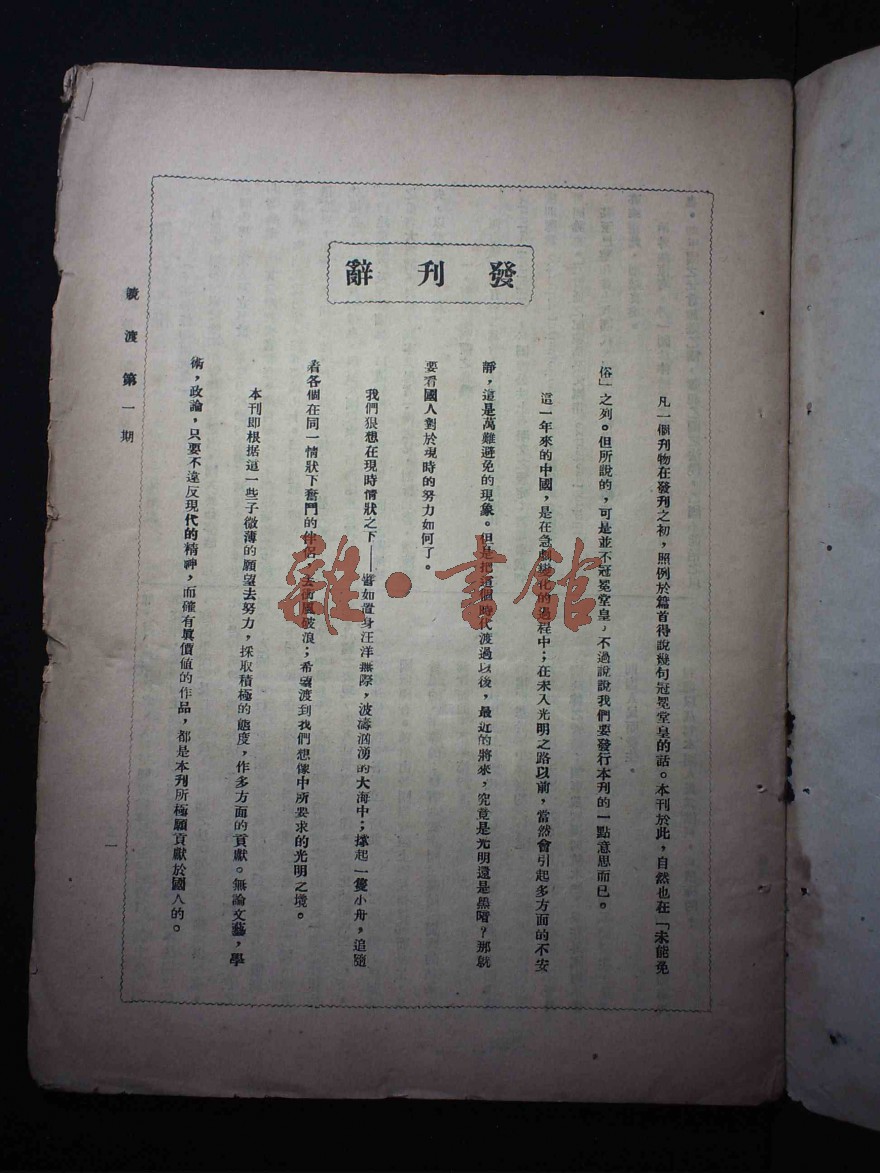 發刊辭
凡一個刊物在發刊之初，照例於篇首得說幾句冠冕堂皇的話。本刊於此，自然也在「未能免
俗」之列。但所說的，可是並不冠冕堂皇，不過說說我們要發行本刊的一點意思而已。
這一年來的中國，是在急劇變化的過程中；在未入光明之路以前，當然會引起多方面的不安
靜，這是萬難避免的現象。但是把這個時代渡過以後，最近的將來，究竟是光明還是黑暗？那就
要看國人對於現時的努力如何了。
我們狠想在現時情狀之下——譬如置身汪洋無際，波濤洶湧的大海中；撑起一隻小舟，追隨
着各個在同一情狀下奮鬥的伴侶，去衝風破浪；希望渡到我們想像中所要求的光明之境。
本刊即根据這一些子微薄的願望去努力，採取積極的態度，作多方面的貢獻。無論文藝，學
術，政論，只要不違反現代的精神，而確有眞價値的作品，都是本刊所極願貢獻於國人的。
競渡第一期
一
雜·書館